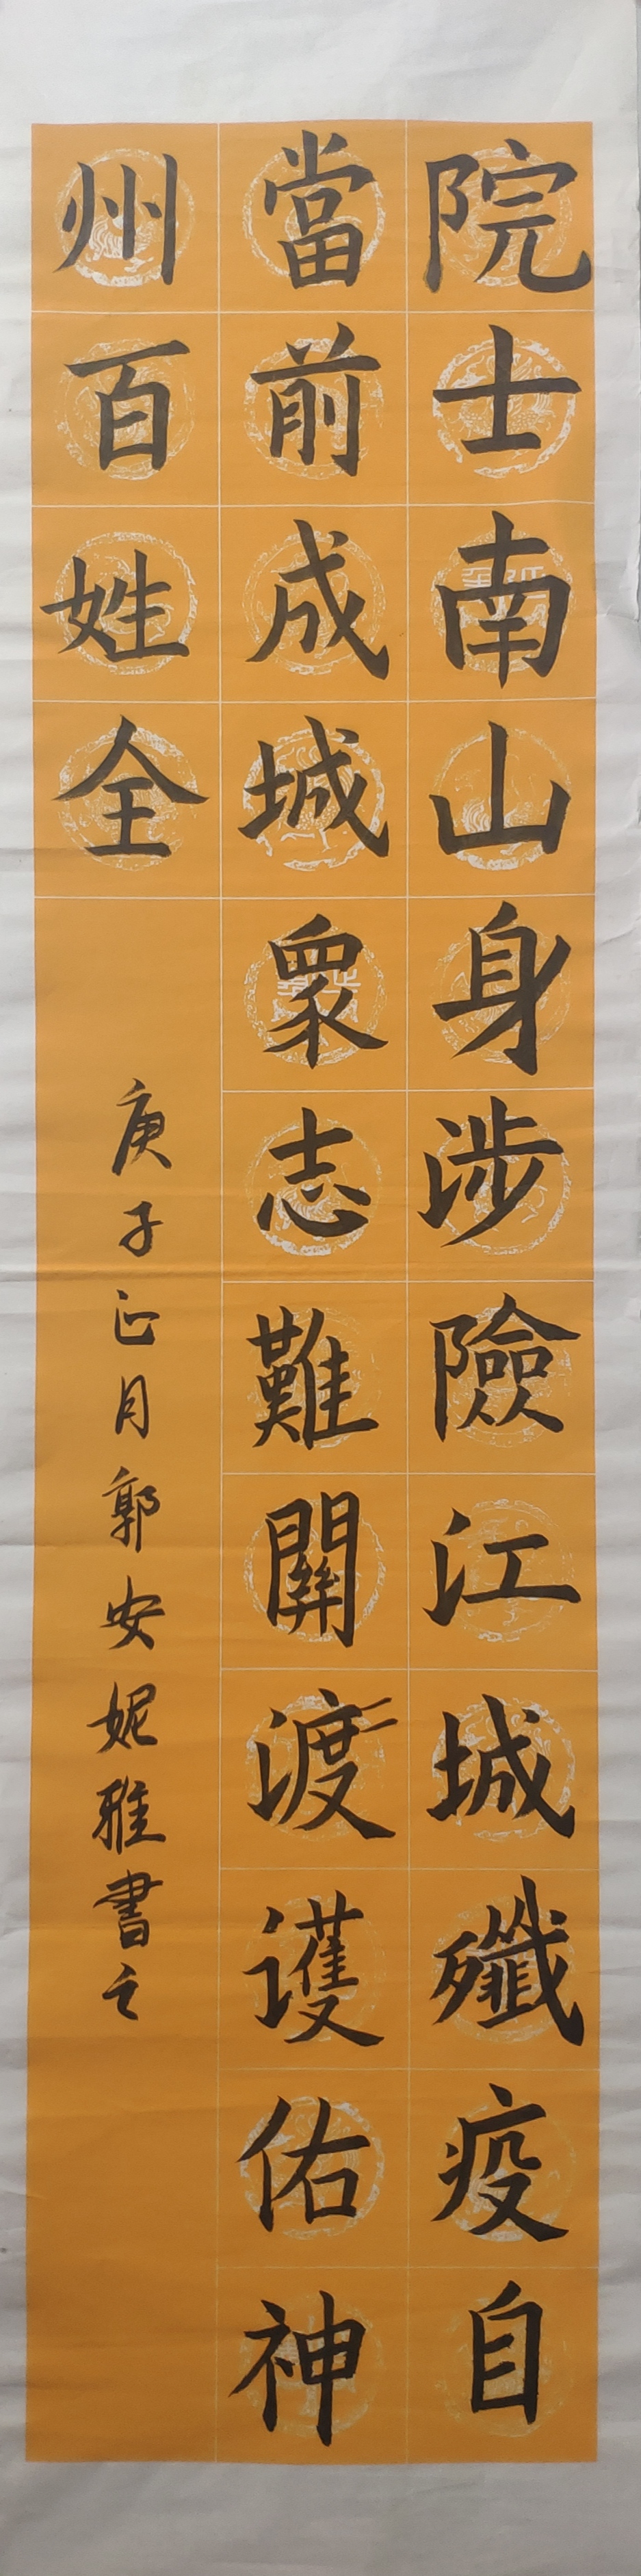 院士南山身涉險江城殲疫自
當前成城眾志難關渡護佑神
州百姓全
庚子正月郭安妮雅書之